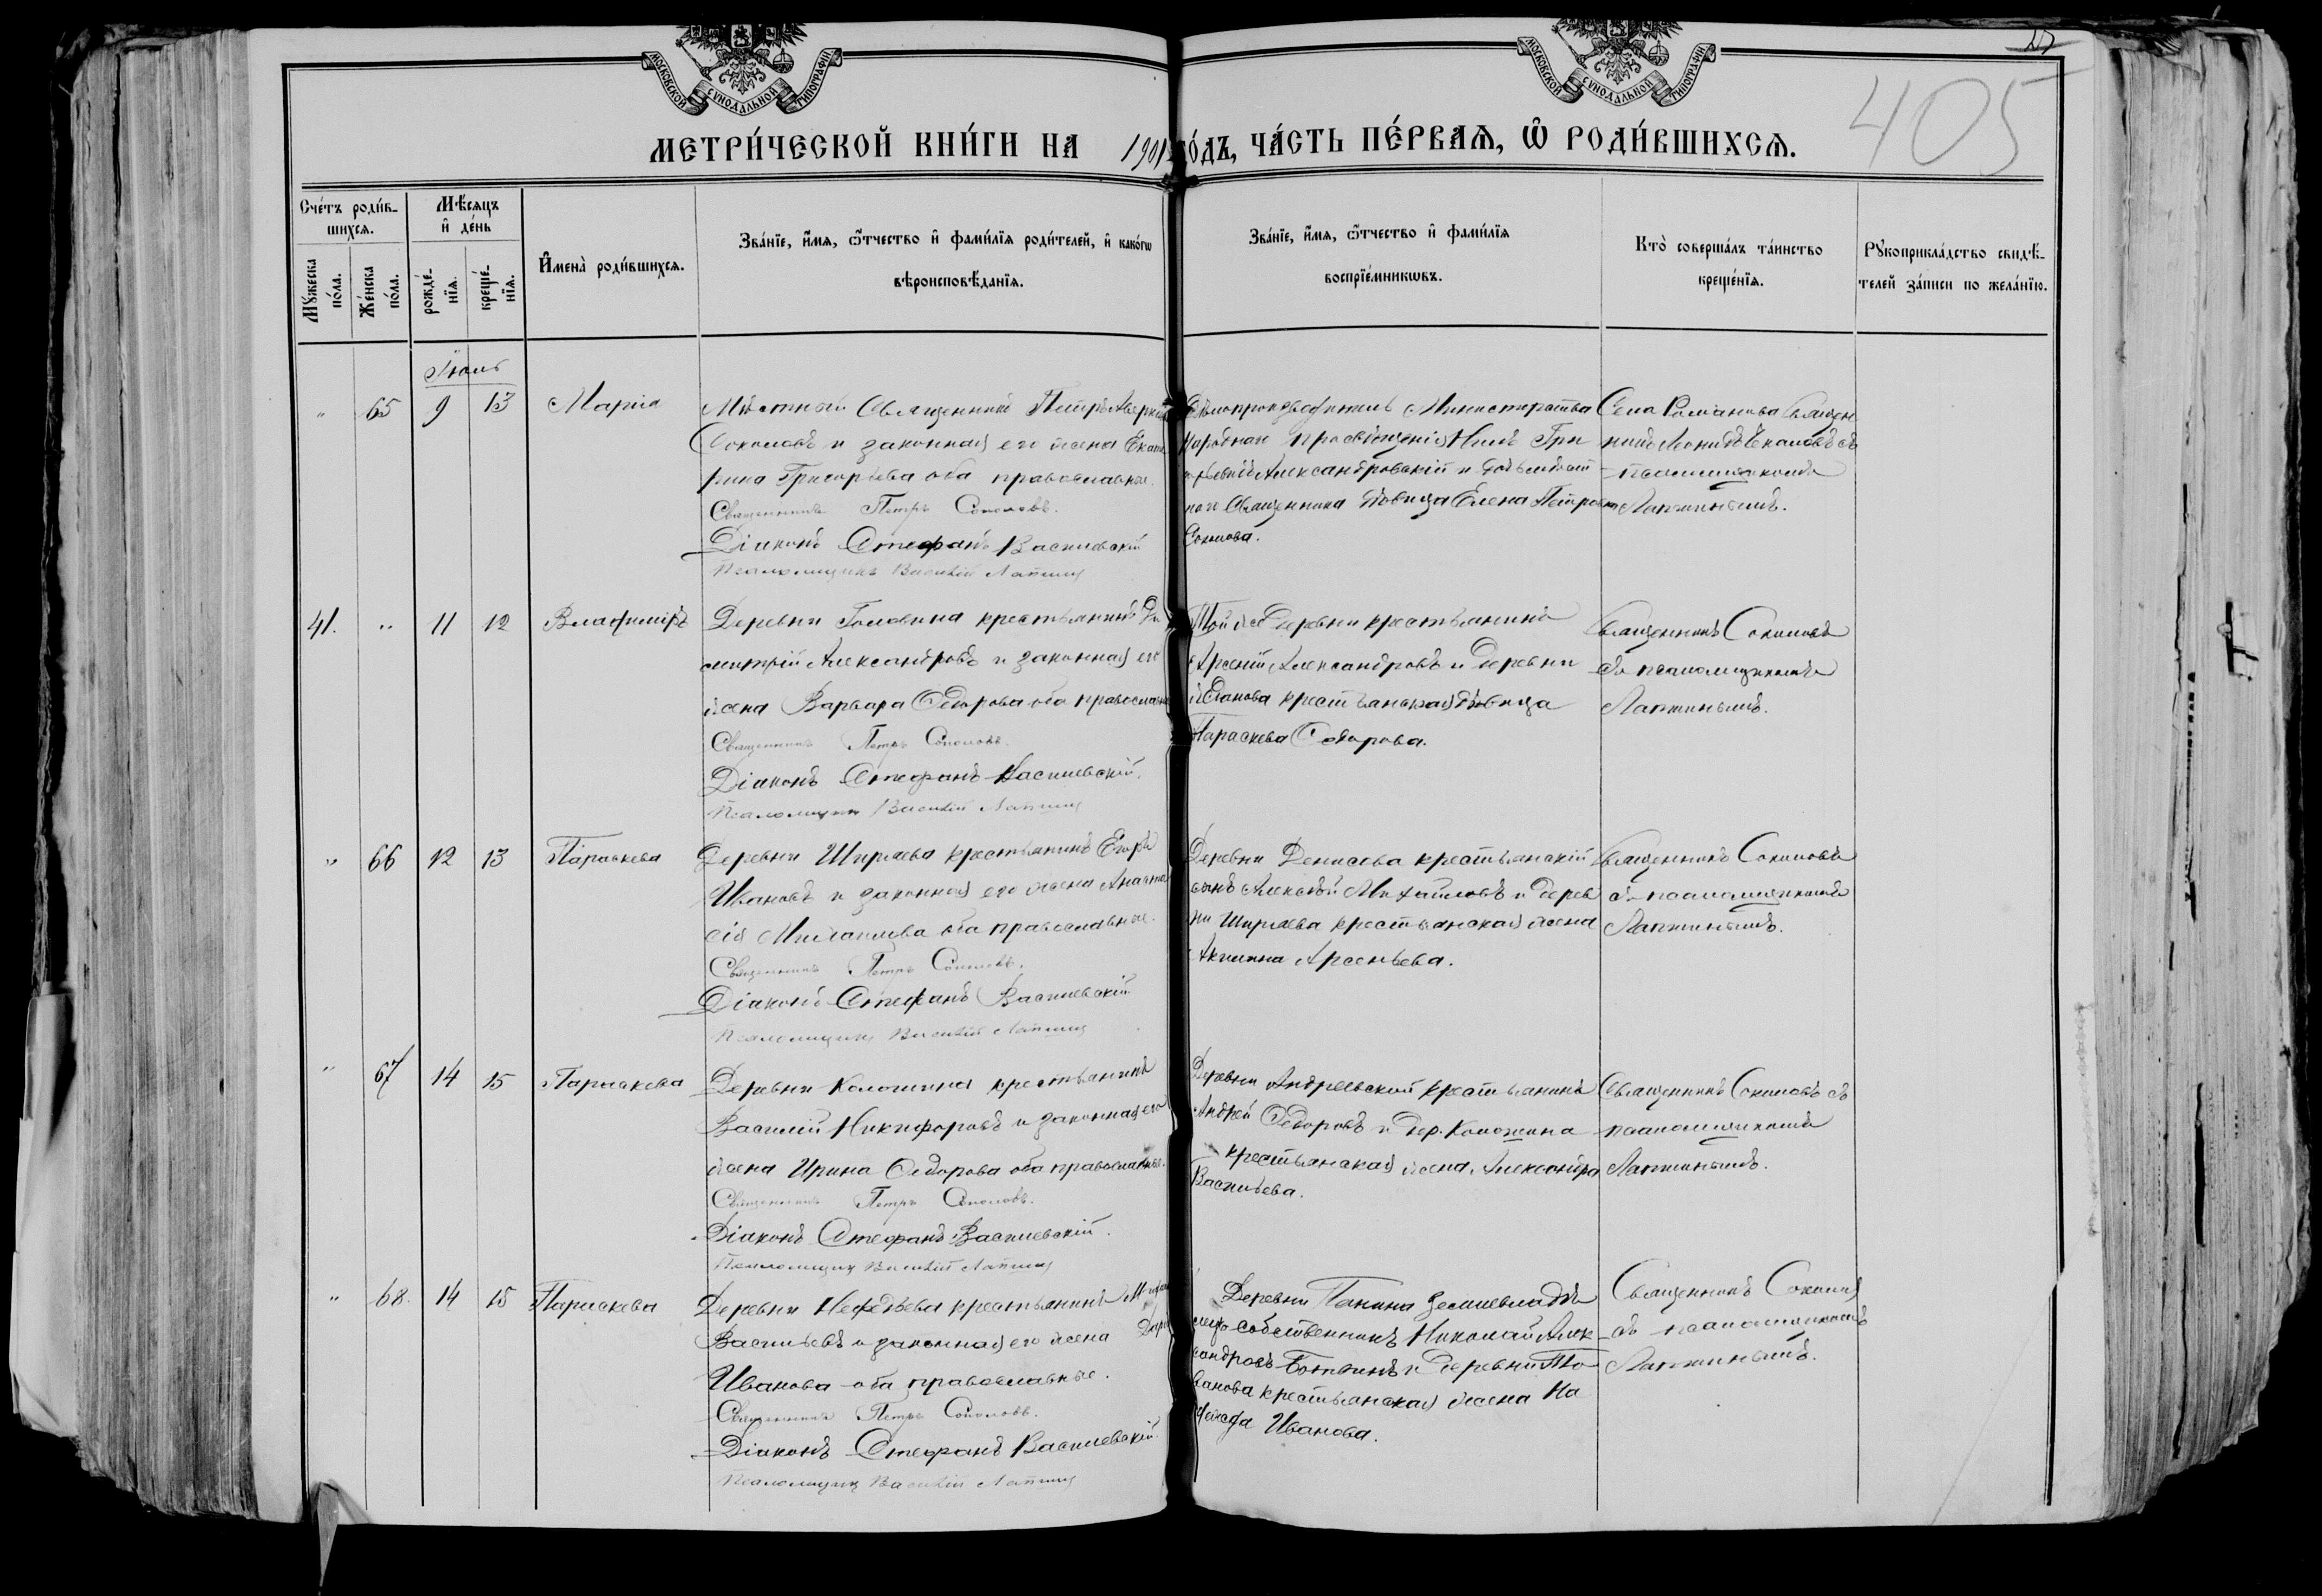 МОСКОВСКОЙ СѴНОДАЛЬНОЙ ТИПОГРАФІИ
МОСКОВСКОЙ СѴНОДАЛЬНОЙ ТИПОГРАФІИ
405
МЕТРИ́ЧЕСКОЙ КНИ́ГИ НА 1901 ГО́ДЪ, ЧА́СТЬ ПЕ́РВАѦ, Ѡ҆ РОДИ́ВШИХСѦ.
Сче́тъ роди́вшихсѧ.
Мꙋ́жеска по́ла.
Же́нска по́ла.
Мѣ́сѧцъ и҆ де́нь
рожде́нїѧ.
креще́нїѧ.
И҆мена̀ роди́вшихсѧ.
Зва́нїе, и҆́мѧ, ѻ҆́тчество и҆ фами́лїѧ роди́телей, и҆ како́гѡ
вѣроисповѣ́данїѧ.
Зва́нїе, и҆́мѧ, ѻ҆́тчество и҆ фами́лїѧ
воспрїе́мникѡвъ.
Кто̀ соверша́лъ та́инство
креще́нїѧ.
Рꙋкоприкла́дство свидѣ́-
телей за́писи по жела́нїю.
Іюль
" 65 9 13 Марія
Мѣстный Священникъ Петръ
Соколовъ и законная его жена Екате
рина Григорьева оба православные.
Священникъ Петръ Соколовъ.
Діаконъ Стефанъ Васильевскій
Псаломщикъ Василій Лапшинъ
Дѣлопроизводитель Министерства
Народнаго просвѣщенія Нилъ Гри
горьевичъ Александровскій и
Священника дѣвица Елена Петровна
Соколова.
Села Романова Священ
никъ Леонидъ съ
псаломщикомъ
Лапшинымъ.
41. " 11 12 Владиміръ
Деревни Головина крестьянинъ Ди
митрій Александровъ и законная его
жена Варвара Ѳедорова оба православные
Священникъ Петръ Соколовъ.
Діаконъ Стефанъ Васильевскій.
Псаломщикъ Василій Лапшинъ
Той же деревни крестьянинъ
Арсеній Александровъ и деревни
Жданова крестьянская дѣвица
Параскева Ѳедорова.
Священникъ Соколовъ
съ псаломщикомъ
Лапшинымъ.
" 66 12 13 Параскева
Деревни Ширяева крестьянинъ Егоръ
Ивановъ и законная его жена Анаста
сія Михайлова оба православные.
Священникъ Петръ Соколовъ.
Діаконъ Стефанъ Васильевскій
Псаломщикъ Василій Лапшинъ
Деревни Денисова крестьянскій
сынъ Алексѣй Михайловъ и дерев
ни Ширяева крестьянская жена
Акилина Арсеньева.
Священникъ Соколовъ
съ псаломщикомъ
Лапшинымъ.
" 67 14 15 Параскева
Деревни крестьянинъ
Василій Никифоровъ и законная его
жена Ирина Ѳедорова оба православные.
Священникъ Петръ Соколовъ.
Діаконъ Стефанъ Васильевскій.
Псаломщикъ Василій Лапшинъ
Деревни Андреевской крестьянинъ
Андрей Ѳедоровъ и дер.
крестьянская жена Александра
Васильева.
Священникъ Соколовъ съ
псаломщикомъ
Лапшинымъ.
" 68. 14 15 Параскева
Деревни Нефедьева крестьянинъ
Васильевъ и законная его жена
Иванова оба православные.
Священникъ Петръ Соколовъ.
Діаконъ Стефанъ Васильевскій.
Псаломщикъ Василій Лапшинъ
Деревни Панина землевладѣ
лецъ-собственникъ Николай Алек
сандровъ и деревни
крестьянская жена На
дежда Иванова.
Священникъ Соколовъ
съ псаломщикомъ
Лапшинымъ.